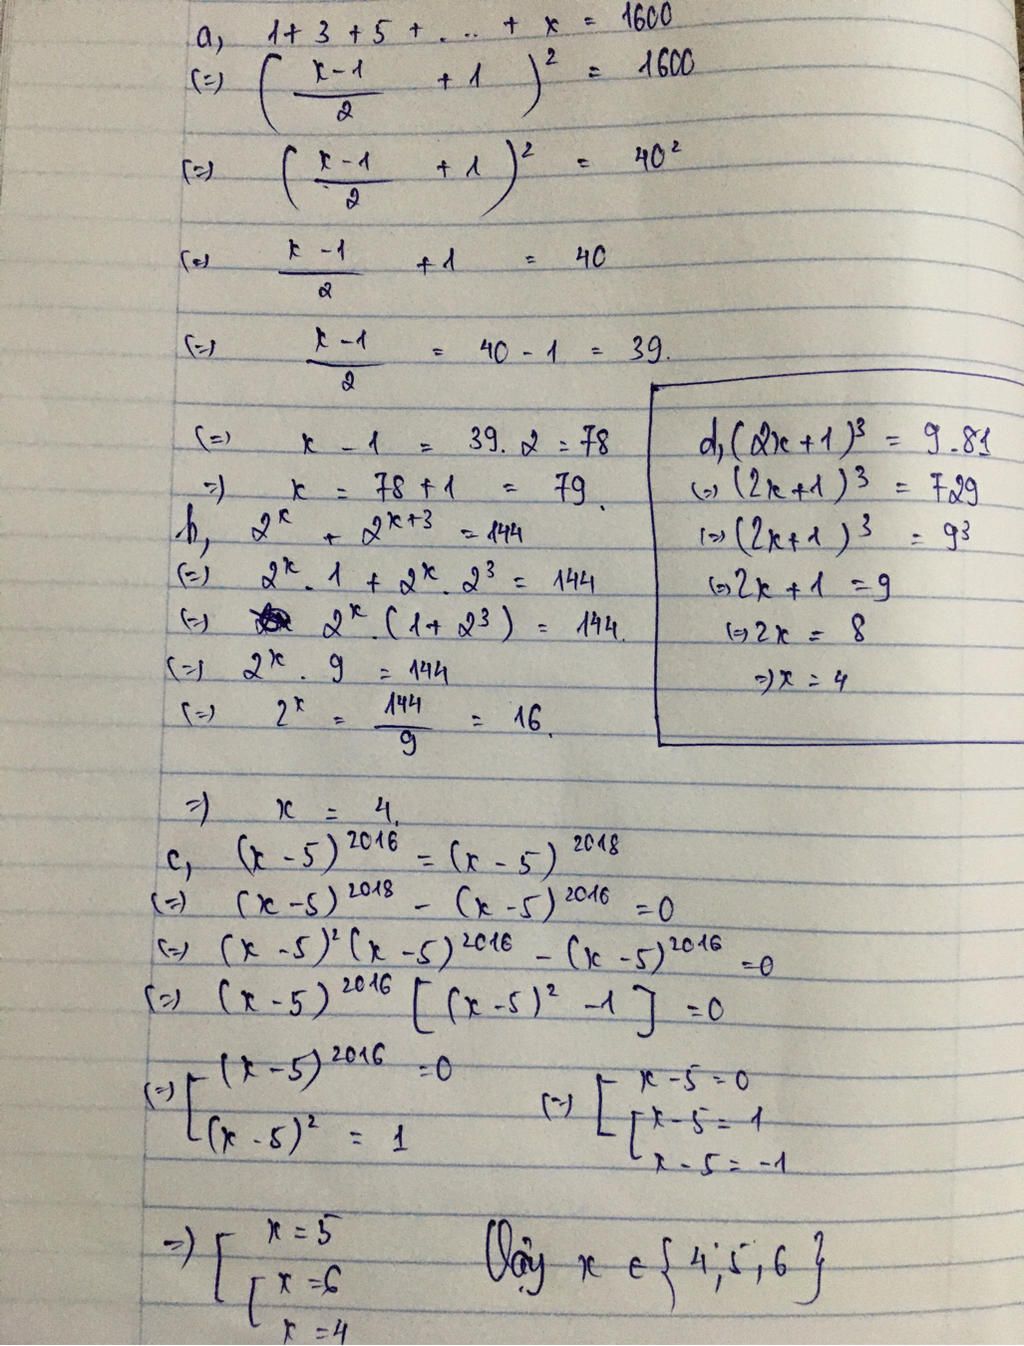 a, 1 + 3 + 5 + ... + x = 1600
(=) ( (x-1)/2 + 1 )² = 1600
(=) ( (x-1)/2 + 1 )² = 40²
(=) (x-1)/2 + 1 = 40
(=) (x-1)/2 = 40 - 1 = 39.
(=) x - 1 = 39. 2 = 78
=) x = 78 + 1 = 79.
b, 2^x + 2^(x+3) = 144
(=) 2^x . 1 + 2^x . 2³ = 144
(=) 2^x . (1 + 2³) = 144.
(=) 2^x . 9 = 144
(=) 2^x = 144/9 = 16.
=) x = 4.
c, (x - 5)^2016 = (x - 5)^2018
(=) (x - 5)^2018 - (x - 5)^2016 = 0
(=) (x - 5)² (x - 5)^2016 - (x - 5)^2016 = 0
(=) (x - 5)^2016 [ (x - 5)² - 1 ] = 0
(=) [ (x - 5)^2016 = 0
(x - 5)² = 1
(=) [ x - 5 = 0
[ x - 5 = 1
x - 5 = -1
=) [ x = 5
[ x = 6
x = 4
Vậy x ∈ { 4; 5; 6 }
d, (2x + 1)³ = 9.81
(=) (2x + 1)³ = 729
(=) (2x + 1)³ = 9³
(=) 2x + 1 = 9
(=) 2x = 8
=) x = 4